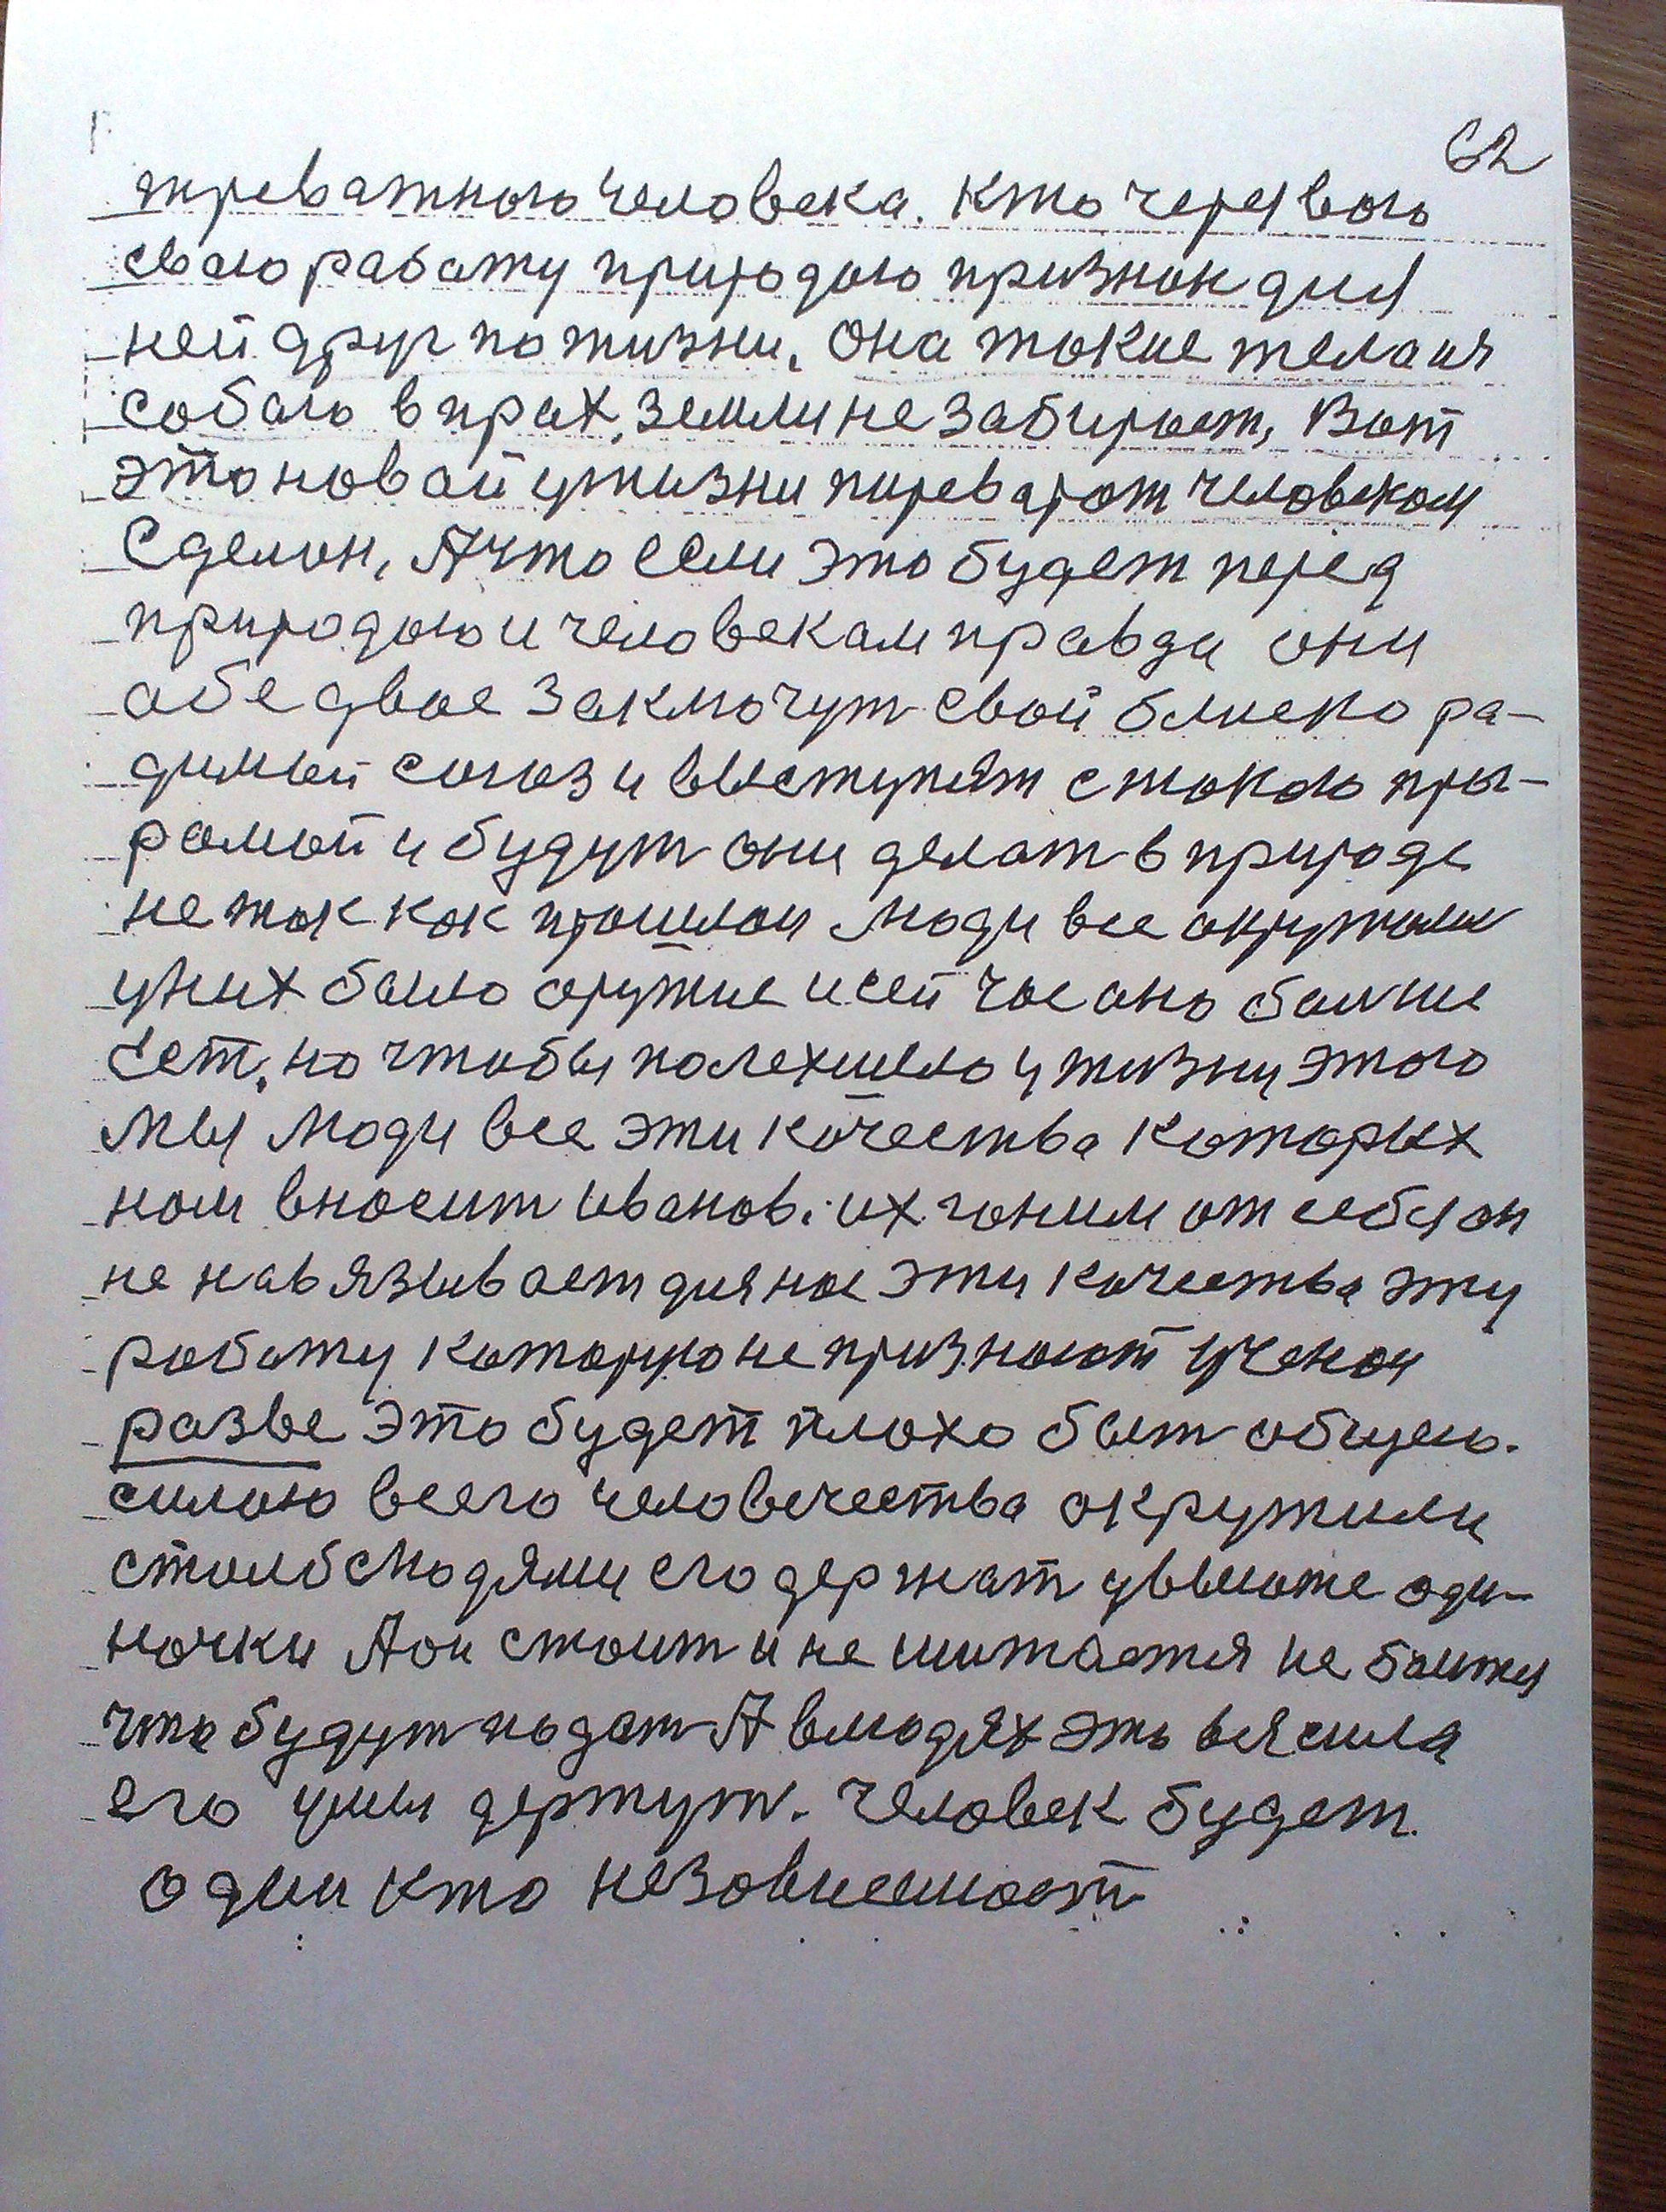 62
треватного человека. Кто через вою
сваю работу природою признан для
ней друг по жизни, Она такие телая
собаю в прах, земли не забирает, Вот
это новай у жизни переварот человеком
Сделан, А что если это будет перед
природою и человекам правда они
абе двое заключут свой блиско ра-
димый союз и выступят с такою пры-
рамой и будут они делат в природе
не так как прошлаи люди все окружали
у них было оружие и сей час ано балше
ест, но чтобы полехшело у жизни этого
мы люди все эти качества которых
нам вносит Иванов. их гоним от себя он
не навязывает для нас эти качества эту
работу которую не признают ученаи
разве это будет плохо быт общею.
силою всего человечества окружили
столб людями его держат у высоте оди-
ночки А он стоит и не шитается не боится
что будут подат А в людях эта вся сила
его держут. Человек будет
один кто независимост